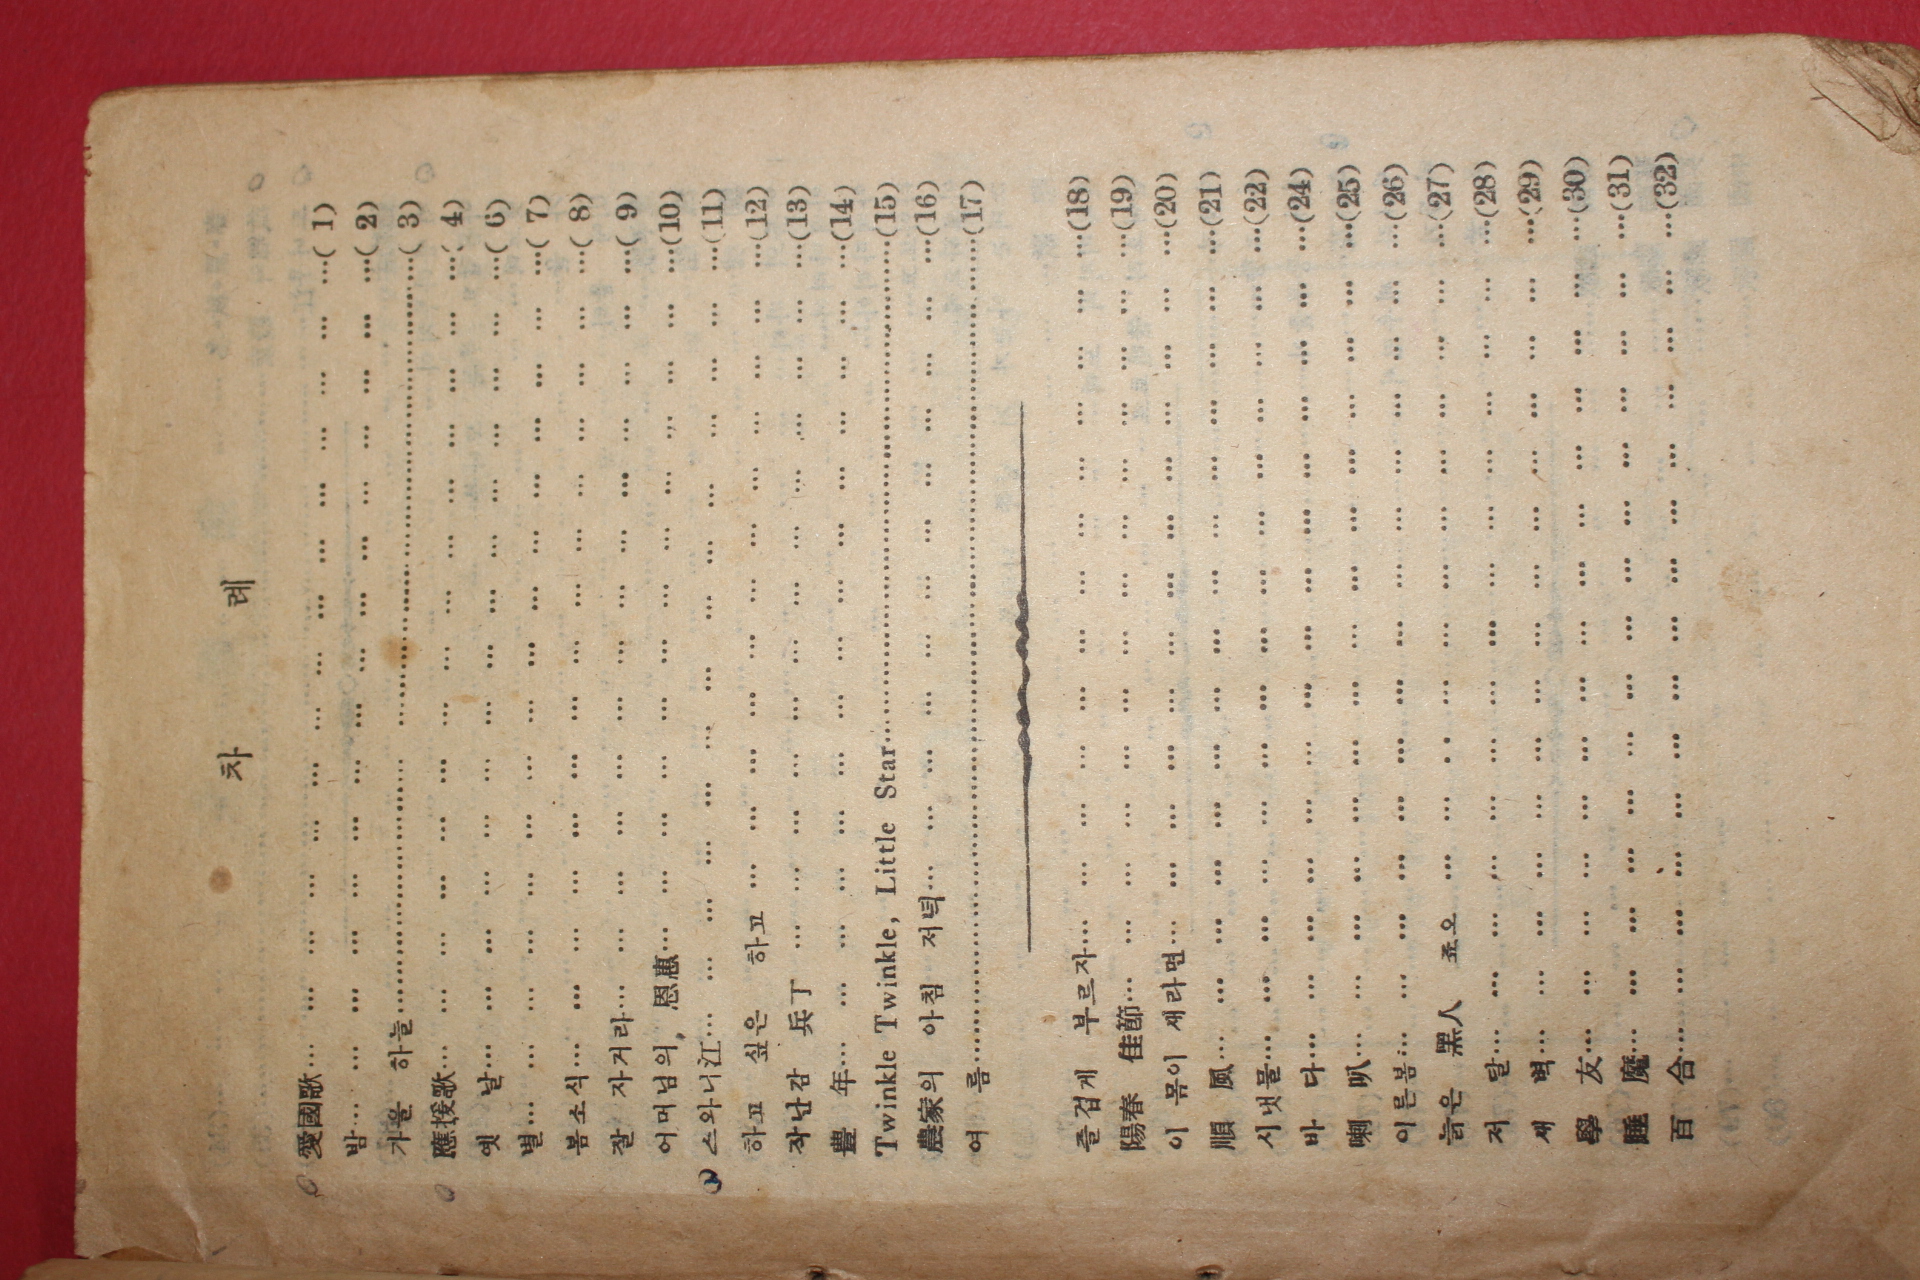 차 례
愛國歌… … … … … … … … … … … … … … …( 1)
밤… … … … … … … … … … … … … … … …( 2)
가을 하늘………………………………………………( 3)
應援歌… … … … … … … … … … … … … … …( 4)
옛 날… … … … … … … … … … … … … … …( 6)
별… … … … … … … … … … … … … … … …( 7)
봄소식… … … … … … … … … … … … … … …( 8)
잘 자거라… … … … … … … … … … … … … …( 9)
어머님의 恩惠… … … … … … … … … … … … …(10)
스와니江… … … … … … … … … … … … … … …(11)
하고 싶은 하고 … … … … … … … … … … … …(12)
작난감 兵丁 … … … … … … … … … … … … …(13)
豊 年… … … … … … … … … … … … … … …(14)
Twinkle Twinkle, Little Star………………………………(15)
農家의 아침 저녁… … … … … … … … … … … …(16)
여 름……………………………………………………(17)
즐겁게 부르자… … … … … … … … … … … … …(18)
陽春 佳節… … … … … … … … … … … … … …(19)
이 몸이 새라면… … … … … … … … … … … … …(20)
順 風… … … … … … … … … … … … … … …(21)
시냇물… … … … … … … … … … … … … … …(22)
바 다… … … … … … … … … … … … … … …(24)
喇 叭… … … … … … … … … … … … … … …(25)
이른봄… … … … … … … … … … … … … … …(26)
늙은 黑人 죠오 … … … … … … … … … … … …(27)
저 달… … … … … … … … … … … … … … …(28)
새 벽… … … … … … … … … … … … … … …(29)
學 友… … … … … … … … … … … … … … …(30)
睡 魔… … … … … … … … … … … … … … …(31)
百 合… … … … … … … … … … … … … … …(32)